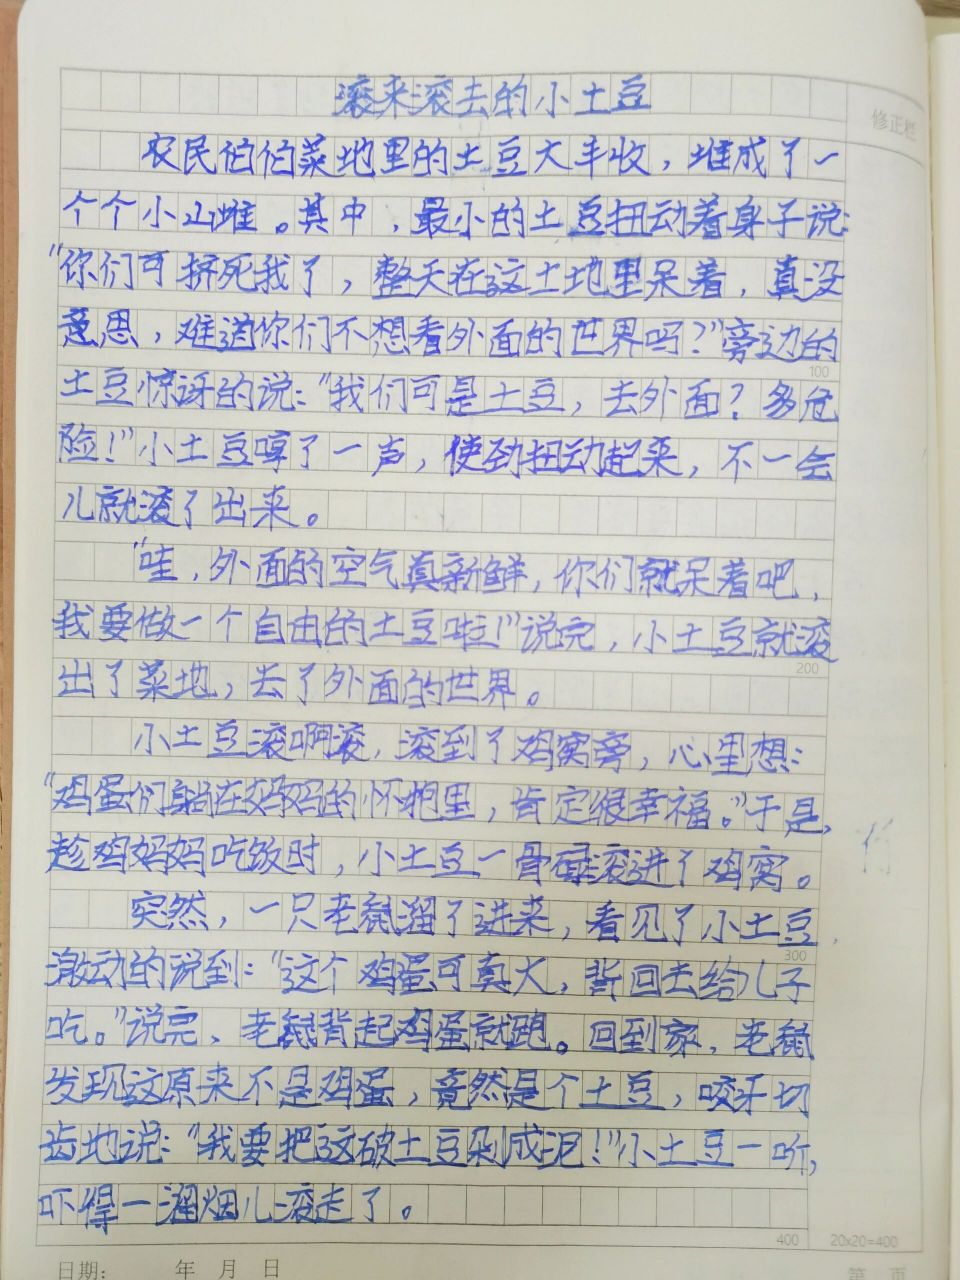 滚来滚去的小土豆
修正栏
农民伯伯菜地里的土豆大丰收，堆成了一
个个小山堆。其中，最小的土豆扭动着身子说：
“你们可挤死我了，整天在这土地里呆着，真没
意思，难道你们不想看外面的世界吗？”旁边的
100
土豆惊讶的说：“我们可是土豆，去外面？多危
险！”小土豆哼了一声，使劲扭动起来，不一会
儿就滚了出来。
“哇，外面的空气真新鲜，你们就呆着吧，
我要做一个自由的土豆啦！”说完，小土豆就滚
200
出了菜地，去了外面的世界。
小土豆滚啊滚，滚到了鸡窝旁，心里想：
“鸡蛋们躺在妈妈的怀抱里，肯定很幸福。”于是，
趁鸡妈妈吃饭时，小土豆一骨碌滚进了鸡窝。
突然，一只老鼠溜了进来，看见了小土豆，
300
激动的说到：“这个鸡蛋可真大，背回去给儿子
吃。”说完，老鼠背起鸡蛋就跑。回到家，老鼠
发现这原来不是鸡蛋，竟然是个土豆，咬牙切
齿地说：“我要把这破土豆剁成泥！”小土豆一听，
吓得一溜烟儿滚走了。
400
20x20=400
日期： 年 月 日
第 页